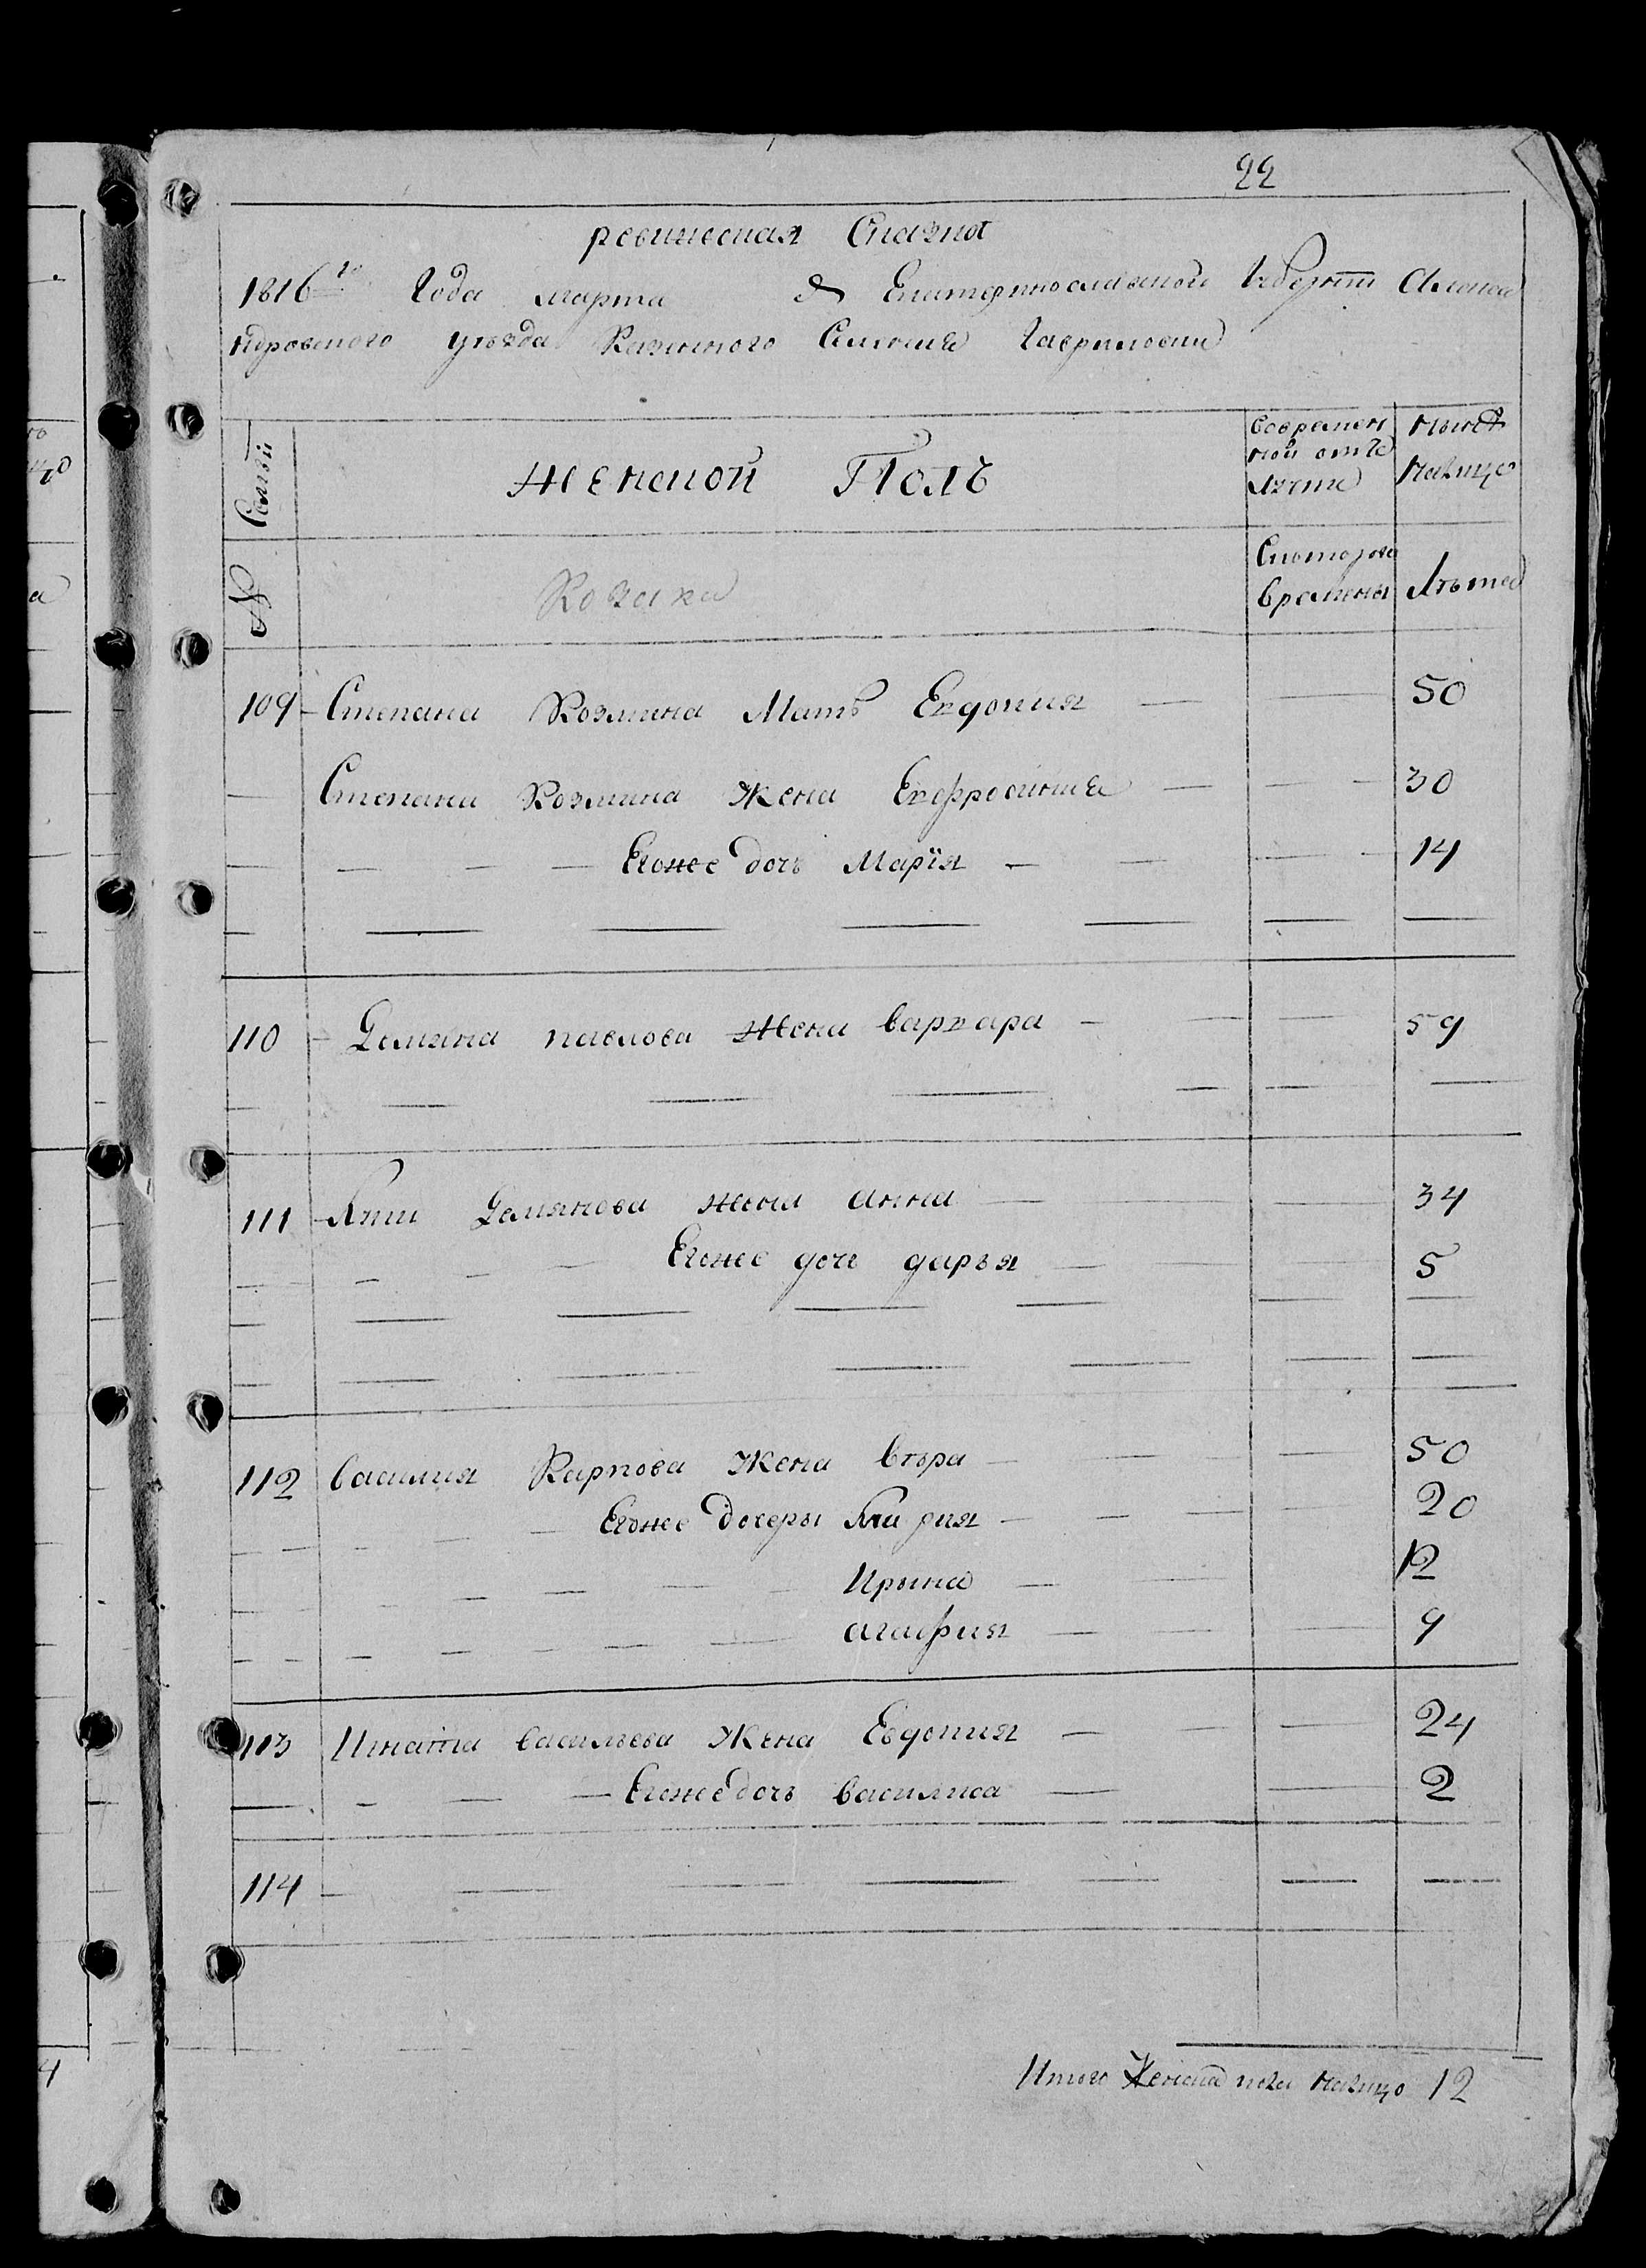 22
ревижеская Сказка
1816го Года марта дня Екатеринославской Губернии Алексан
ндровского уезда Казенного Селения Гавриловки
Семьи
женской Полъ
Вовремен
ной отлу
лучке
ныне
налицо
№
Козаки
Скоторого
времены
Лета
109 Степана Козмина Мать Евдокия 50
Степана Козмина Жена Евфросиния 30
Егоже дочь Марïя 14
110 Демяна павлова жена варвара 59
111 Демянова жена анна 34
Егоже дочь дарья 5
112 василия Карпова Жена вѣра 50
Егоже дочеры 20
Ирына 12
агафия 9
113 Игната васильева Жена Евдокия 24
Егоже дочь василиса 2
114
Итого Женска пола налицо 12
4